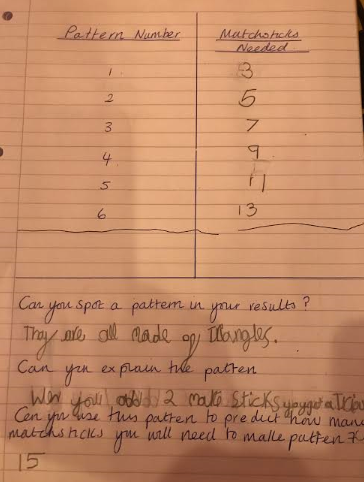 Pattern Number Matchsticks
Needed
1 3
2 5
3 7
4 9
5 11
6 13
Can you spot a pattern in your results?
They are all made of triangles.
Can you explain the patten
you add 2 make sticks you get a
Can you use this patten to predict how many
matchsticks you will need to make patten 7
15